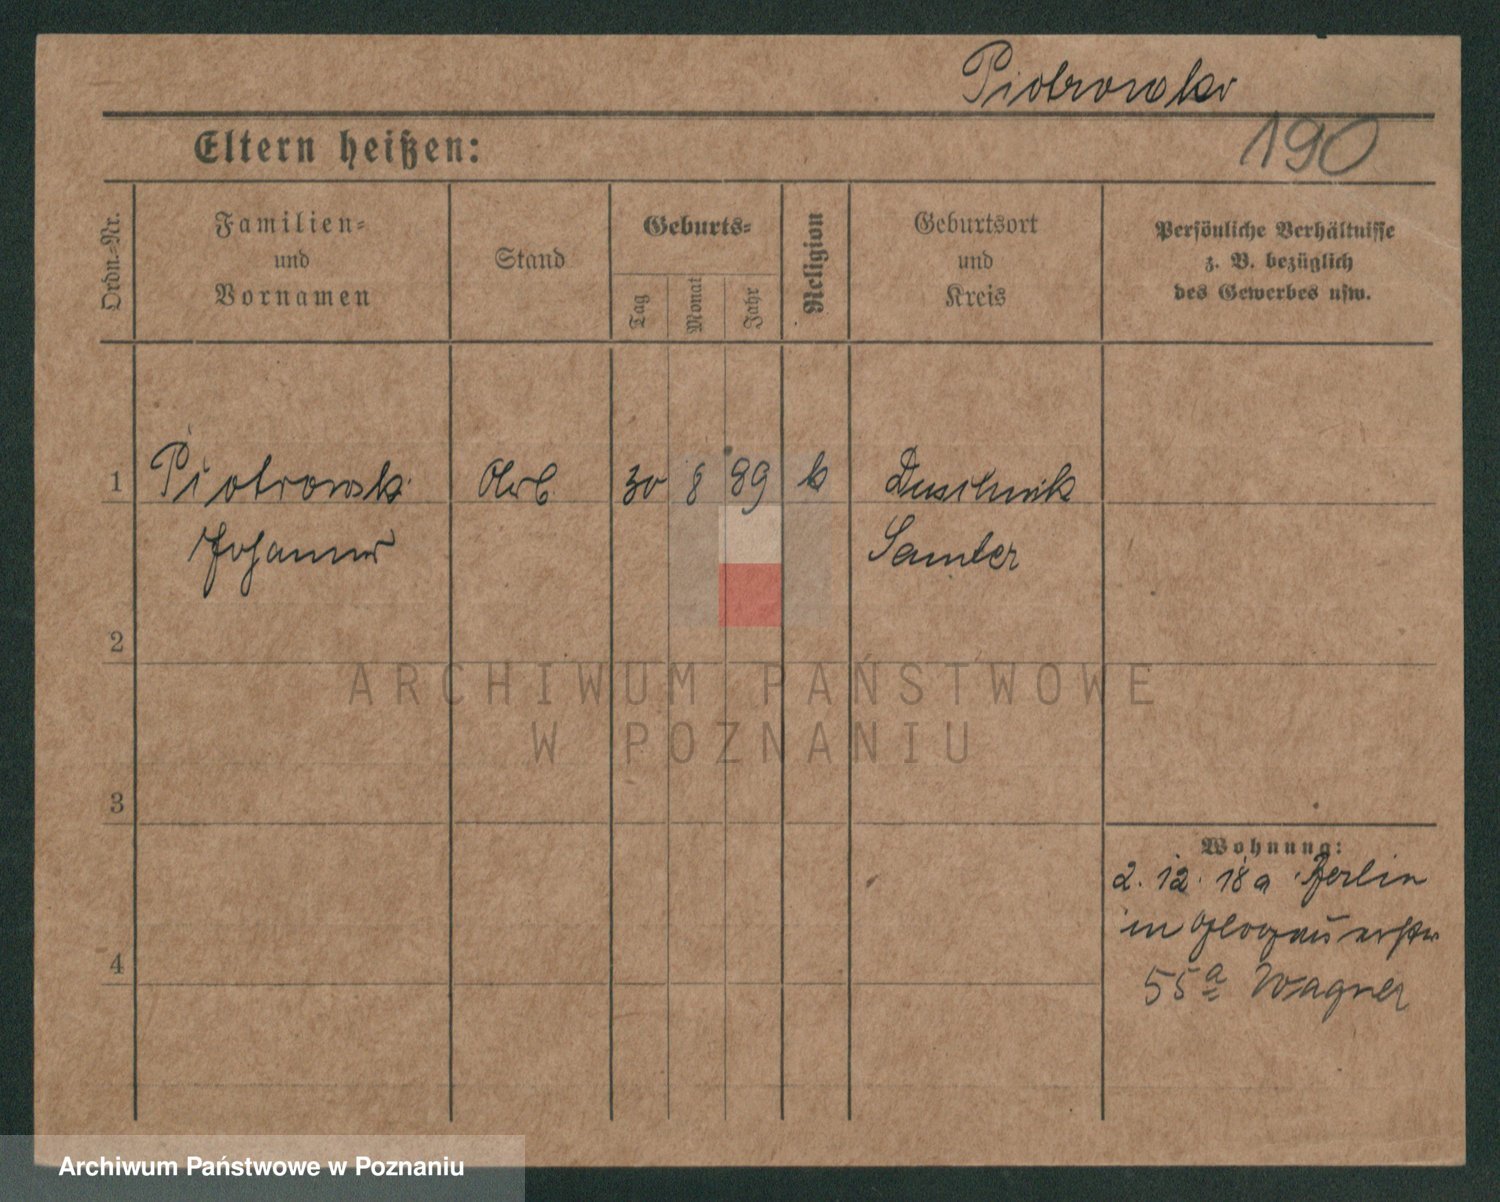 Piotrowski
190
Eltern heißen:
Ordn.-Nr.
Familien-
und
Vornamen
Stand
Geburts-
Tag
Monat
Jahr
Religion
Geburtsort
und
Kreis
Persönliche Verhältnisse
z. B. bezüglich
des Gewerbes usw.
1
Piotrowski
Arb
30
8
89
k
Duschnik
Samter
2
3
4
ARCHIWUM PAŃSTWOWE
W POZNANIU
Wohnung:
2. 12. 18 a Berlin
in Glogau
55a Wagner
Archiwum Państwowe w Poznaniu